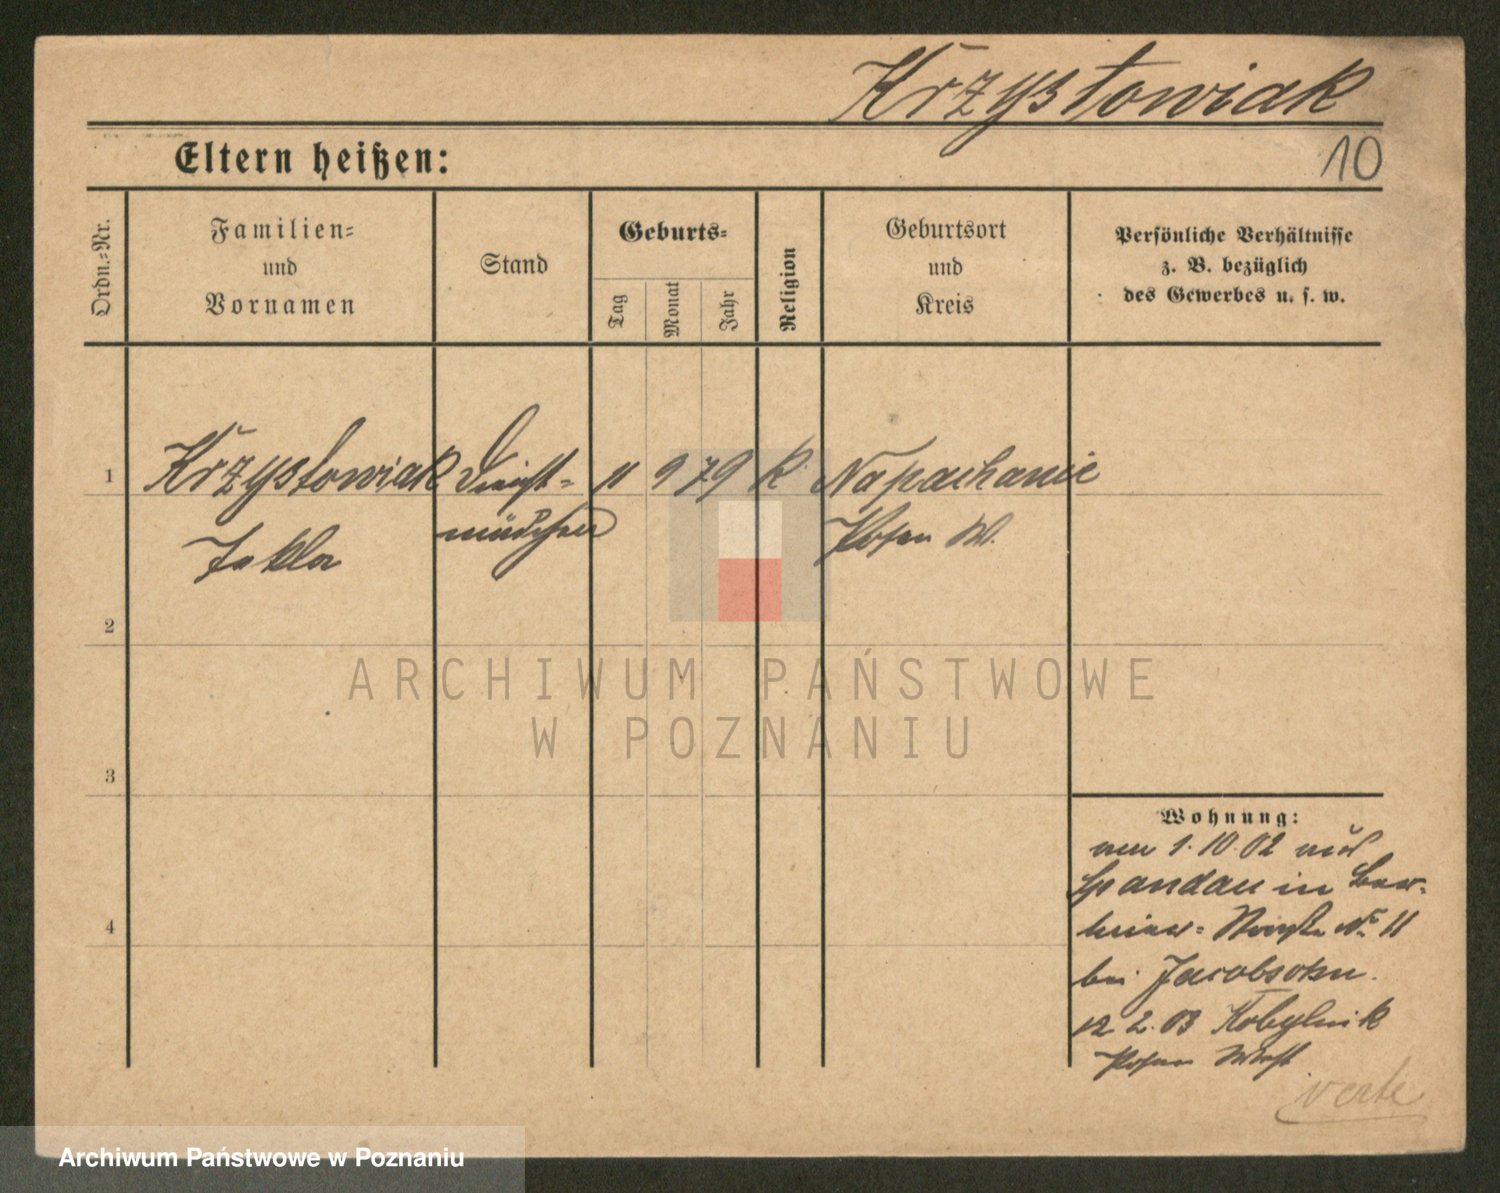 Krzysłowiak
10
Eltern heißen:
Ordn.-Nr.
Familien-
und
Vornamen
Stand
Geburts-
Tag
Monat
Jahr
Religion
Geburtsort
und
Kreis
Persönliche Verhältnisse
z. B. bezüglich
des Gewerbes u. s. w.
1 Krzysłowiak Dienst- 11 9 79 k. Napachanie
mädchen Posen W.
Tekla
2
3
4
Wohnung:
1.10.02
Spandau in Ber-
liner- Straße No 11
bei Jacobsohn.
12 2.03 Kobylnik
Posen West
verte
ARCHIWUM PAŃSTWOWE
W POZNANIU
Archiwum Państwowe w Poznaniu